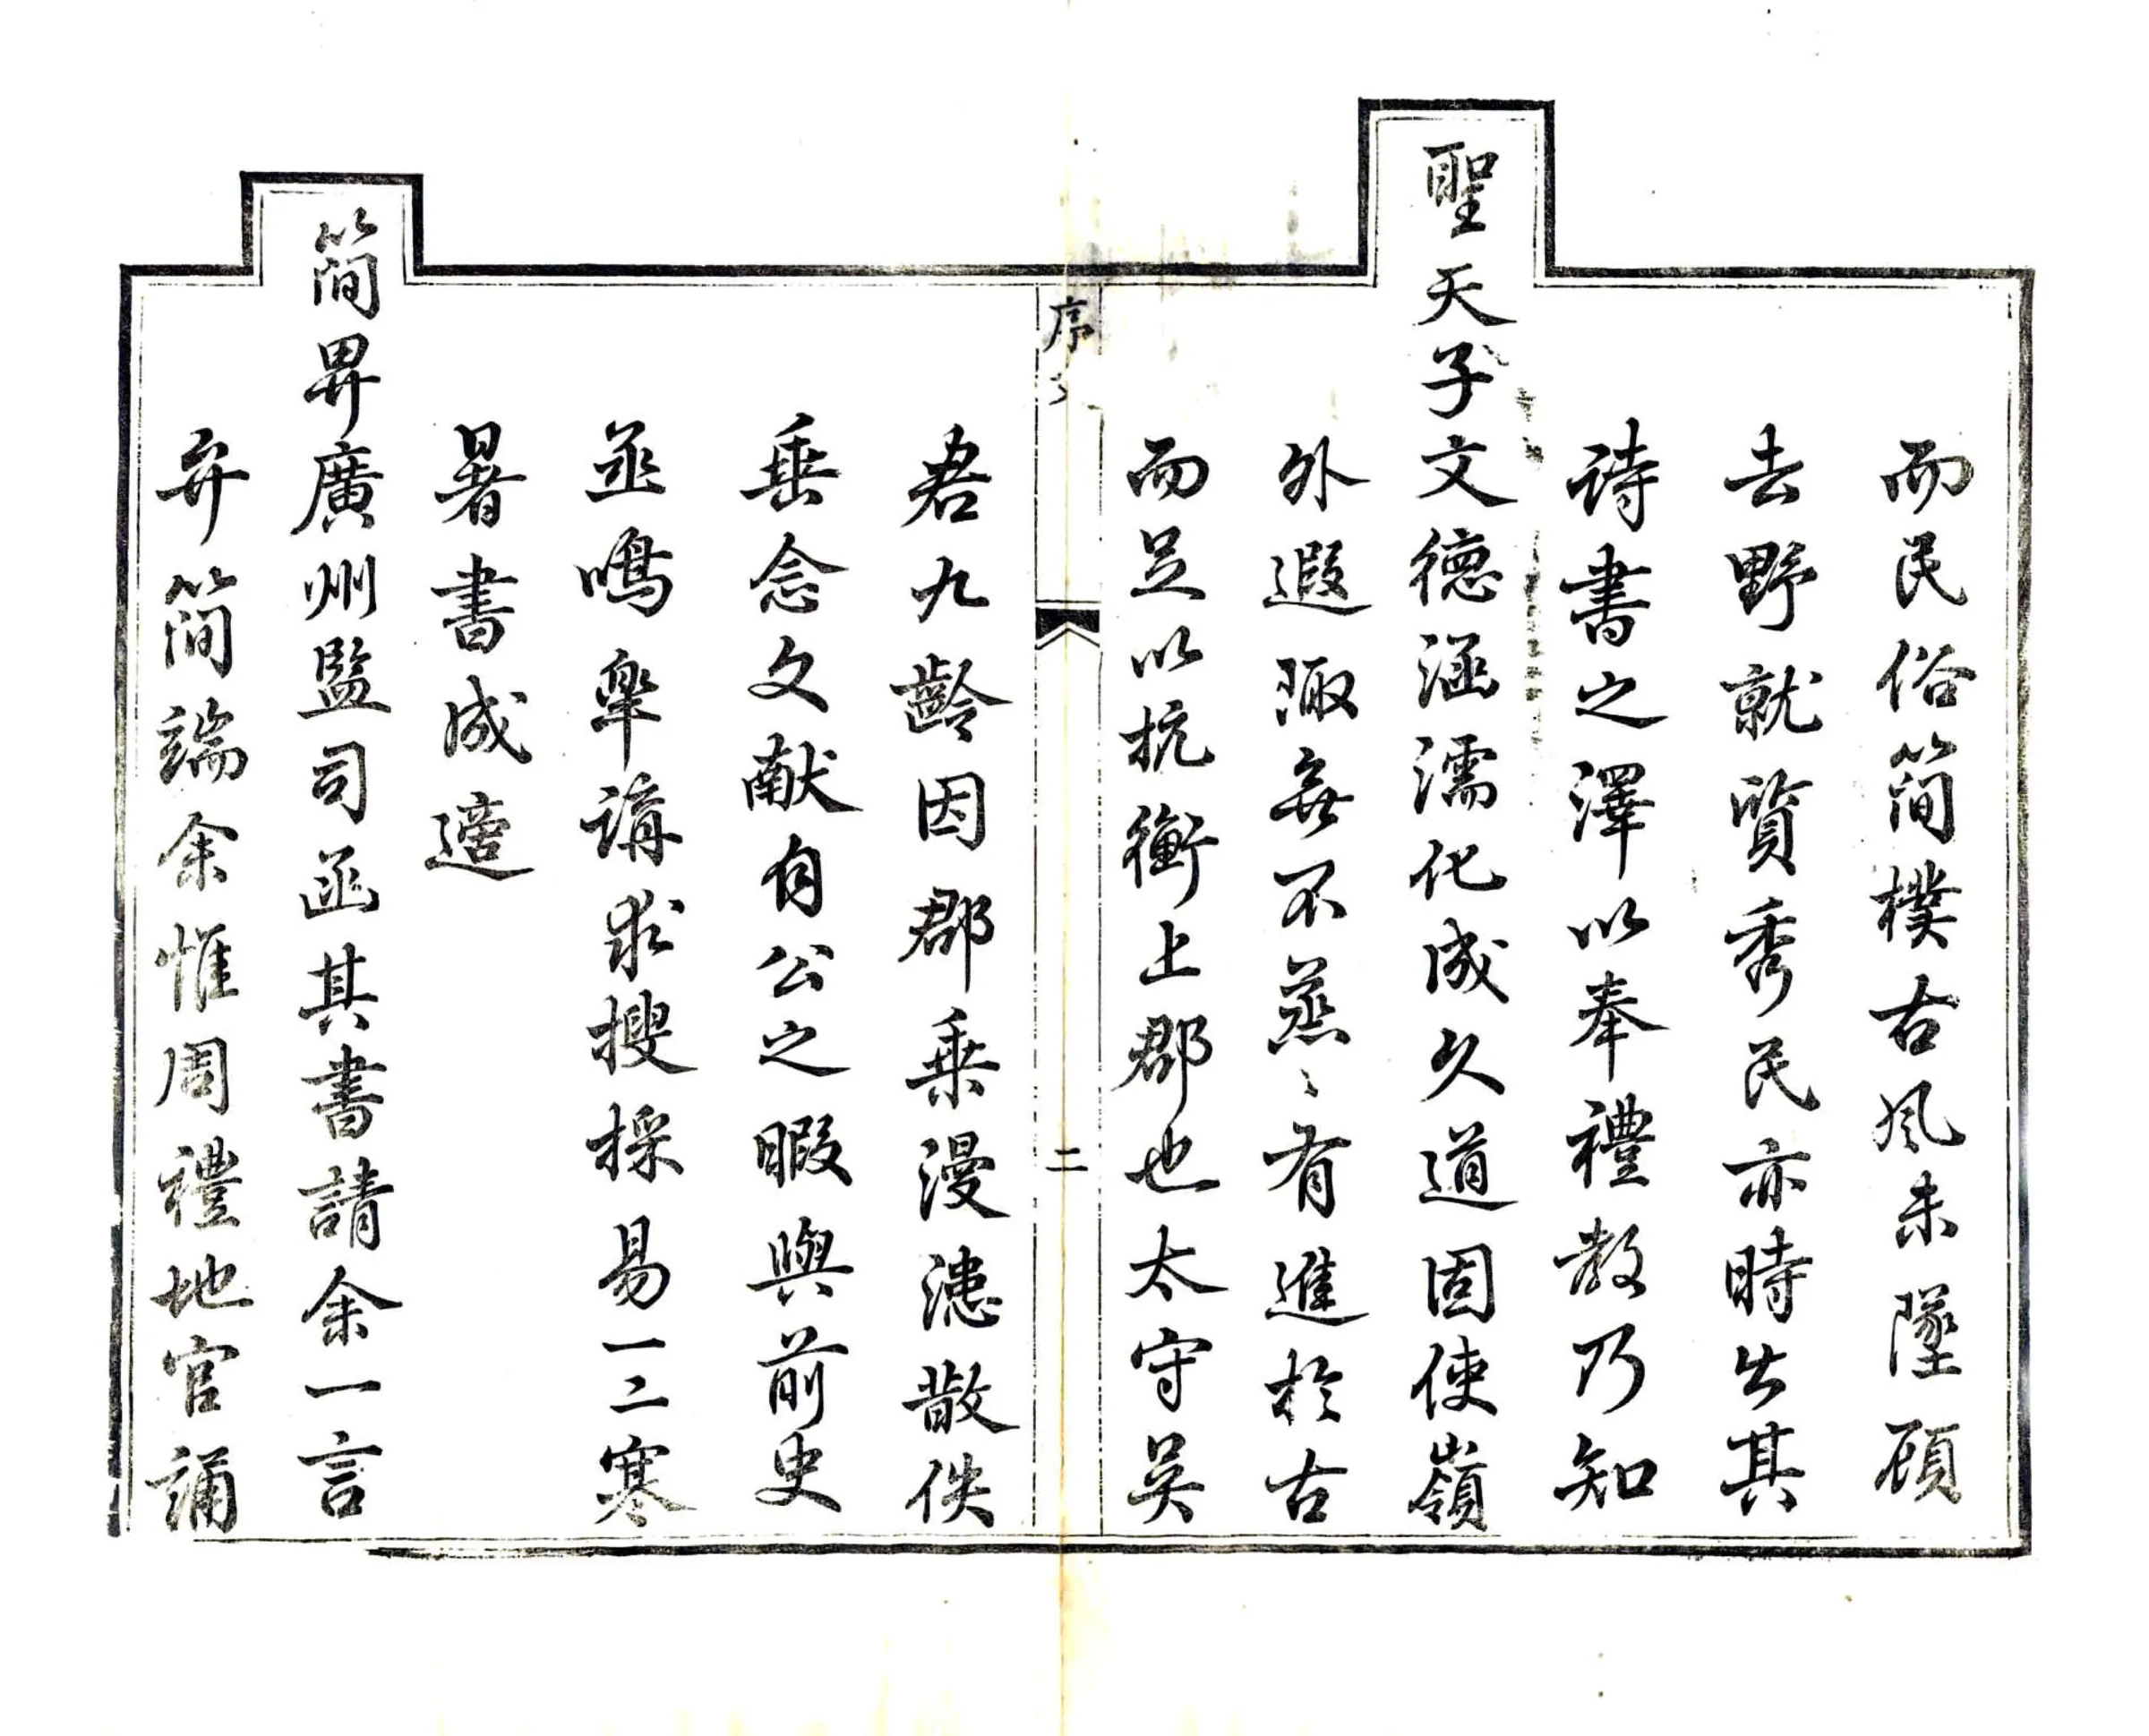 而民俗簡樸古風未墜顧
去野就賢秀民亦時出其
詩書之澤以奉禮教乃知
聖天子文德涵濡化成久道固使嶺
外遐陬無不蒸〻有進於古
而足以抗衡上郡也太守吴
序
二
君九齡因郡乗漫漶散佚
垂念文献自公之暇與前史
丞鳴臯講求搜採易一二寒
暑書成適
簡畀廣州監司函其書請余一言
弁簡端余惟周禮地官誦